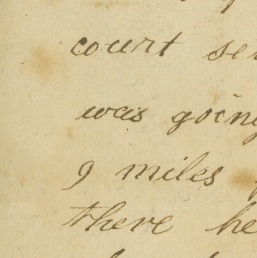 court se
was going
9 miles
there he